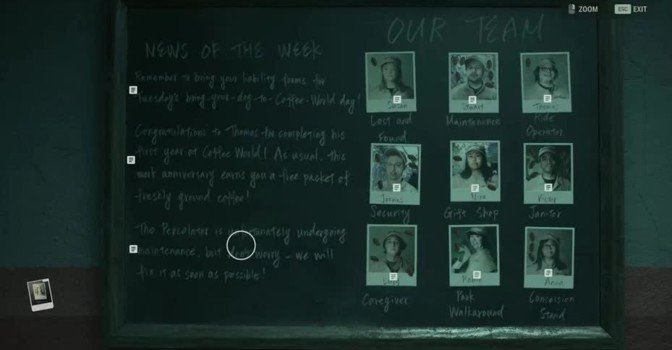 ZOOM
ESC EXIT
NEWS OF THE WEEK
Remember to bring your liability forms for
Tuesday's bring-your-day-to-Coffee-World day!
Congratulations to Thomas for completing his
first year at Coffee World! As usual, this
work anniversary earns you a free packet of
freshly ground coffee!
The Percolator is unfortunately undergoing
maintenance, but don't worry - we will
fix it as soon as possible!
OUR TEAM
Susan
Lost and
Found
Maintenance
Thomas
Ride
Operator
Security
Gift Shop
Janitor
Caregiver
Park
Walkaround
Anna
Concession
Stand